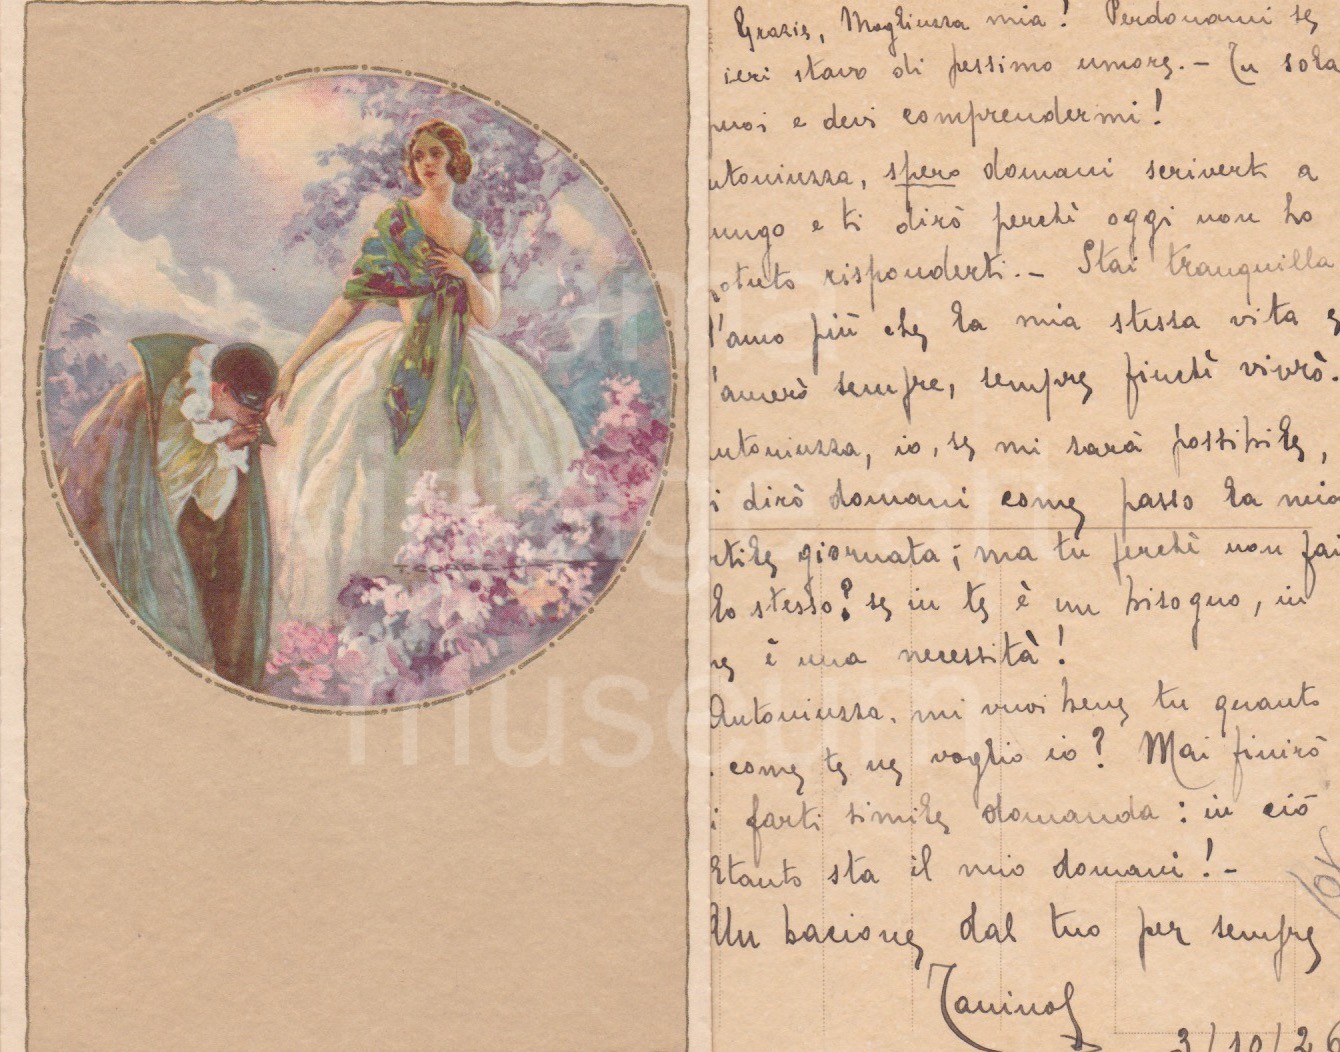 T. CORBELLA
Grazie, Mogliuzza mia! Perdonami se
ieri stavo di pessimo umore. – Tu sola
puoi e devi comprendermi!
ntoniuzza, spero domani scriverti a
ungo e ti dirò perchè oggi non ho
potuto risponderti. – Stai tranquilla
t'amo più che la mia stessa vita e
t'amerò sempre, sempre finchè vivrò.
ntoniuzza, io, se mi sarà possibile,
i dirò domani come passo la mia
rtile giornata; ma tu perchè non fai
lo stesso? se in te è un bisogno, in
me è una necessità!
Antoniuzza, mi vuoi bene tu quanto
e come te ne voglio io? Mai finirò
i farti simile domanda: in ciò
ltanto sta il mio domani! –
Un bacione dal tuo per sempre
Taninol
3/10/26
vintage art
museum